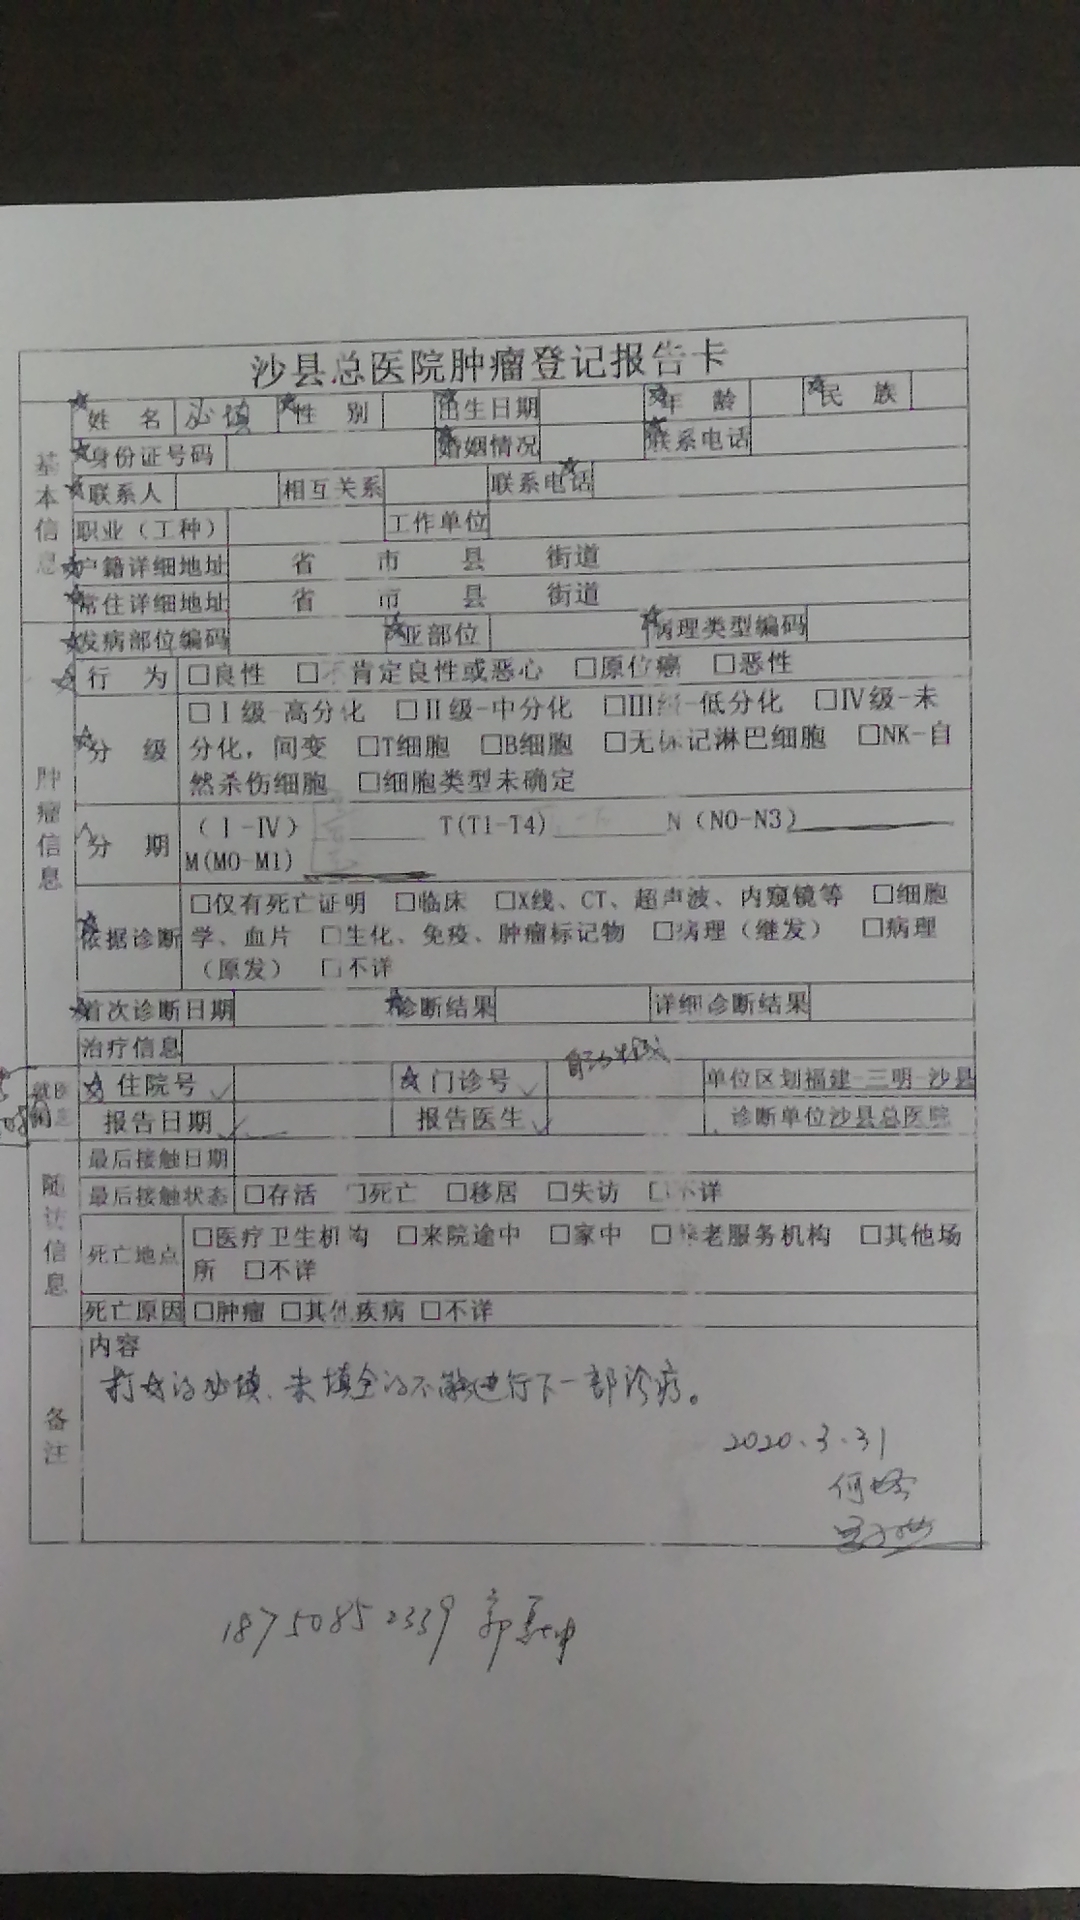 沙县总医院肿瘤登记报告卡
基本信息
☆姓 名 必填 ☆性 别 ☆出生日期 ☆年 龄 ☆民 族
☆身份证号码 ☆婚姻情况 ☆联系电话
☆联系人 相互关系 联系电话☆
职业（工种） 工作单位
☆户籍详细地址 省 市 县 街道
☆常住详细地址 省 市 县 街道
肿瘤信息
☆发病部位编码 ☆亚部位 ☆病理类型编码
☆行 为 □良性 □不肯定良性或恶心 □原位癌 □恶性
☆分 级 □Ⅰ级-高分化 □Ⅱ级-中分化 □Ⅲ级-低分化 □Ⅳ级-未
分化，间变 □T细胞 □B细胞 □无标记淋巴细胞 □NK-自
然杀伤细胞 □细胞类型未确定
分 期 （Ⅰ-Ⅳ）______ T(T1-T4)________N（N0-N3)________
M(M0-M1)________
☆依据诊断 □仅有死亡证明 □临床 □X线、CT、超声波、内窥镜等 □细胞
学、血片 □生化、免疫、肿瘤标记物 □病理（继发） □病理
（原发） □不详
☆首次诊断日期 ☆诊断结果 详细诊断结果
治疗信息
自动生成
☆住院号✓ ☆门诊号✓ 单位区划福建-三明-沙县
报告日期✓ 报告医生✓ 诊断单位沙县总医院
随访信息
最后接触日期
最后接触状态 □存活 □死亡 □移居 □失访 □不详
死亡地点 □医疗卫生机构 □来院途中 □家中 □养老服务机构 □其他场
所 □不详
死亡原因 □肿瘤 □其他疾病 □不详
备注
内容
打☆的必填、未填全的不能进行下一部诊疗。
2020.3.31
18750852339